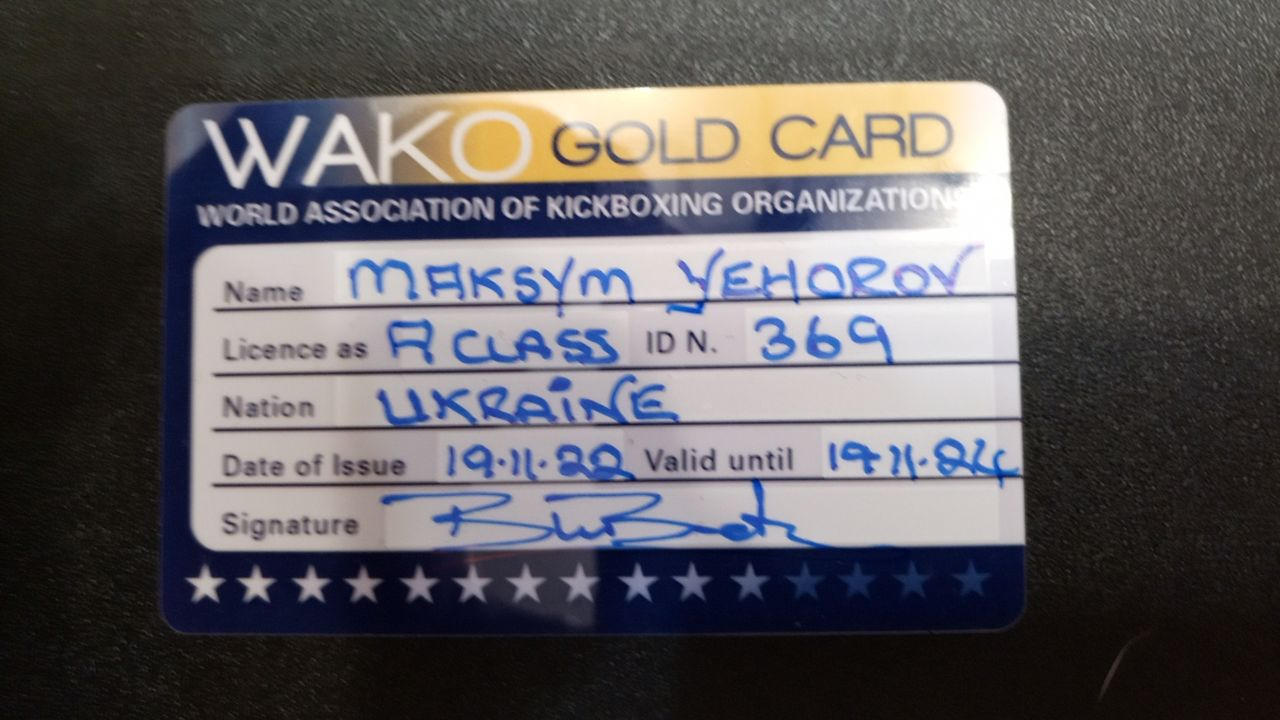 WAKO GOLD CARD
WORLD ASSOCIATION OF KICKBOXING ORGANIZATIONS
Name MAKSYM YEHOROV
Licence as A CLASS ID N. 369
Nation UKRAINE
Date of Issue 19.11.22 Valid until 19.11.24
Signature